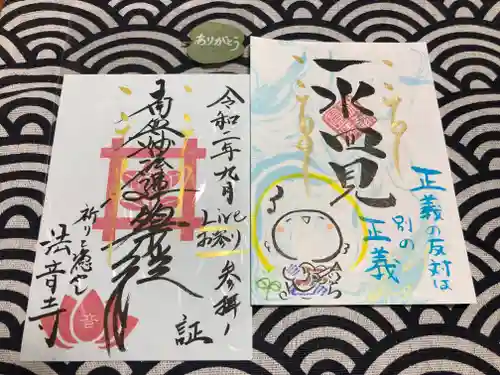 ありがとう
令和二年九月
Live
お参り
参拝
証
南無妙法蓮華経
祈りに憑む
法音寺
音
一水四見
正義の反対は
別の
正義